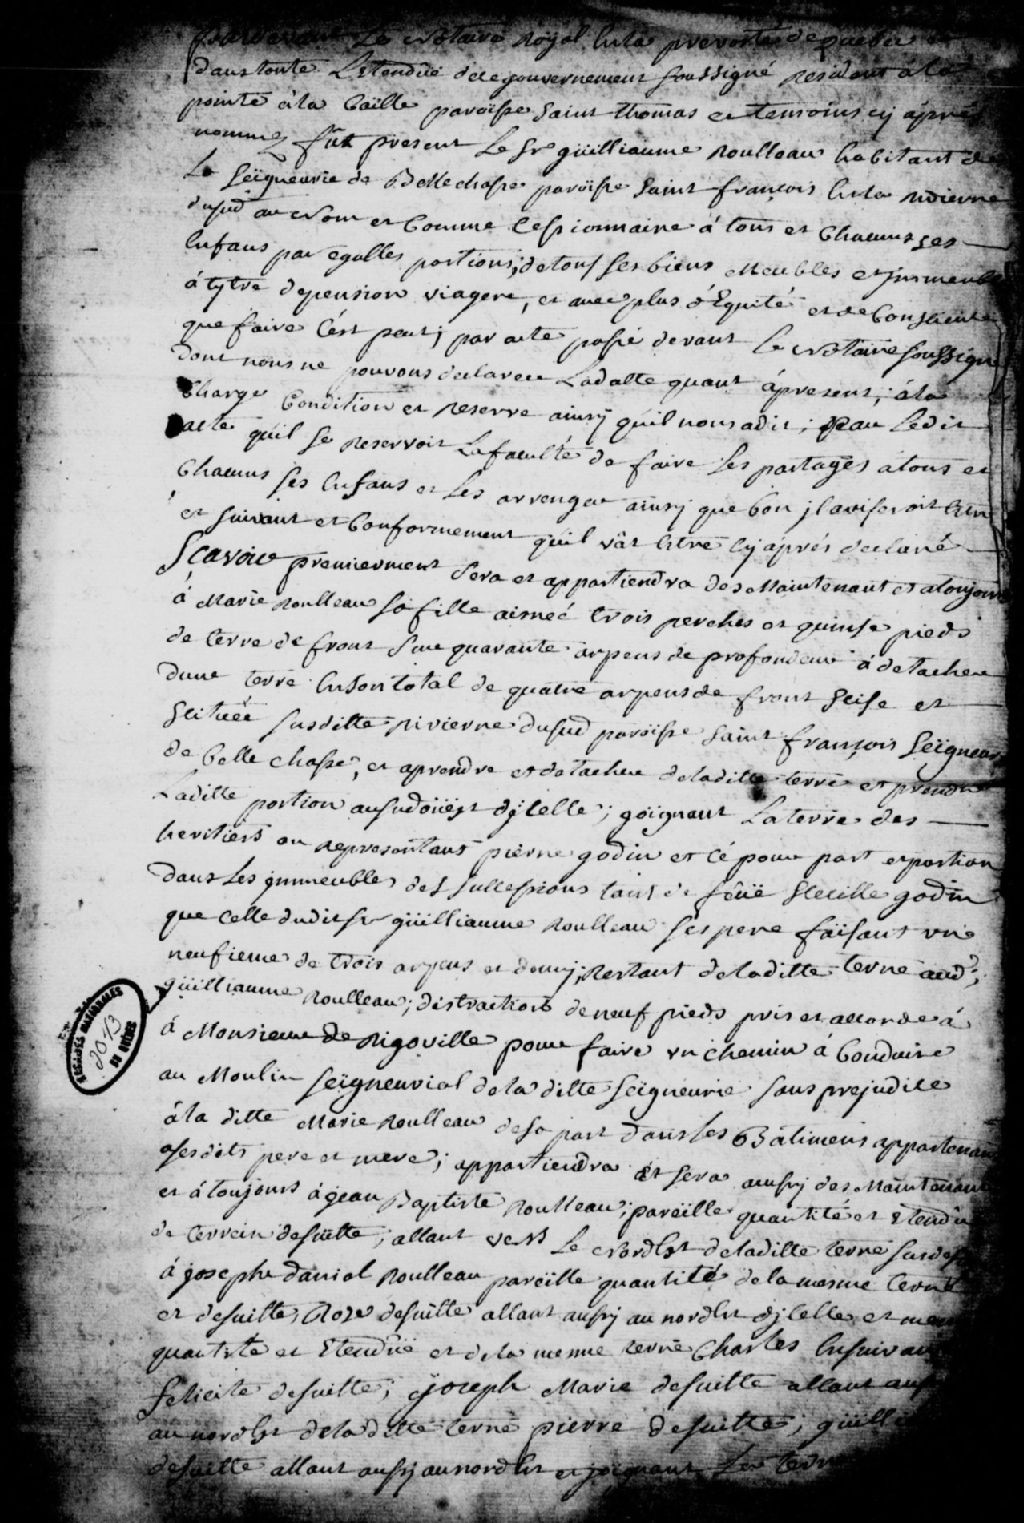 pardevant Le Notaire Royal En la prevosté de quebec et
dans toute L'Etendüe dece gouvernement soussigné Residant á la
pointe á la Caille paroisse Saint thomas et temoins cy áprés
nommez fut present Le Sr güilliaume Roulleau habitant de
La Seigneurie de Bellechasse paroisse Saint françois En la Rivierre
dusud au Nom et Comme Cessionnaire á tous et Chacuns ses
Enfans par egalles portions, detous ses biens Meubles et Immeubles
á tytre depension viagere, et avec plus d'Equité et de Conscience
que faire C'est peut; par acte passé devant Le Notaire Soussigné
dont nous ne pouvons declarer Ladatte quant ápresent; á la
Charge Condition et Reserve ainsy quil nous adit; par Ledit
acte quil se Reservoit Lafaculté de faire Les partages átous et
Chacuns ses Enfans et Les arrenger ainsy que bon jl aviseroit Estre
et suivant et Conformement quil vat Estre Cy áprés declaré
Scavoir premierment Sera et appartiendra des Maintenant et atoujours
á Marie Roulleau Sa fille aisneé trois perches et quinse pieds
de terre de front Sur quarante arpens de profondeur á detacher
dune terre Enson total de quatre arpens de front Seise et
Scituéé susditte Rivierre dusud paroisse Saint françois Seigneurie
de belle chasse, et aprendre et detacher deladitte terre et prendre
Laditte portion ausudoüest djcelle; joignant Laterre des
heritiers ou Representans pierre godin et Cé pour part et portion
dans Les jmmeubles des successions tant de feüe Secille godin
que Celle dudit Sr güilliaume Roulleau ses pere faisant une
neufieme de trois arpens et demy Restant deladitte terre aud;
güilliaume Roulleau; distraction de neuf pieds pris et accordé á
á Monsieur de Rigoville pour faire un chemin á Conduire
au Moulin Seigneurial de la ditte Seigneurie sans prejudice
á la ditte Marie Roulleau desa part dans les Bátimens appartenans
asesdits pere et mere; appartiendra et sera aussy des Maintenant
et átoujours ájean Baptiste Roulleau; pareille quantité et Etendüe
de terrein desuitte; allant vers Le Nordest deladitte terre susdite
á joseph daniel Roulleau pareille quantité de la mesme terre
et desuitte, Rose desuitte allant aussy au nordest djcelle et meme
quantité et Etendüe et dela meme terre Charles Ensuivant
felicité desuitte; joseph Marie desuitte allant aussy
au nordest deladitte terre pierre desuitte; güilli
desuitte allant aussy aunordest et joignant Les terre
ARCHIVES NATIONALES
2013
DU QUÉBEC